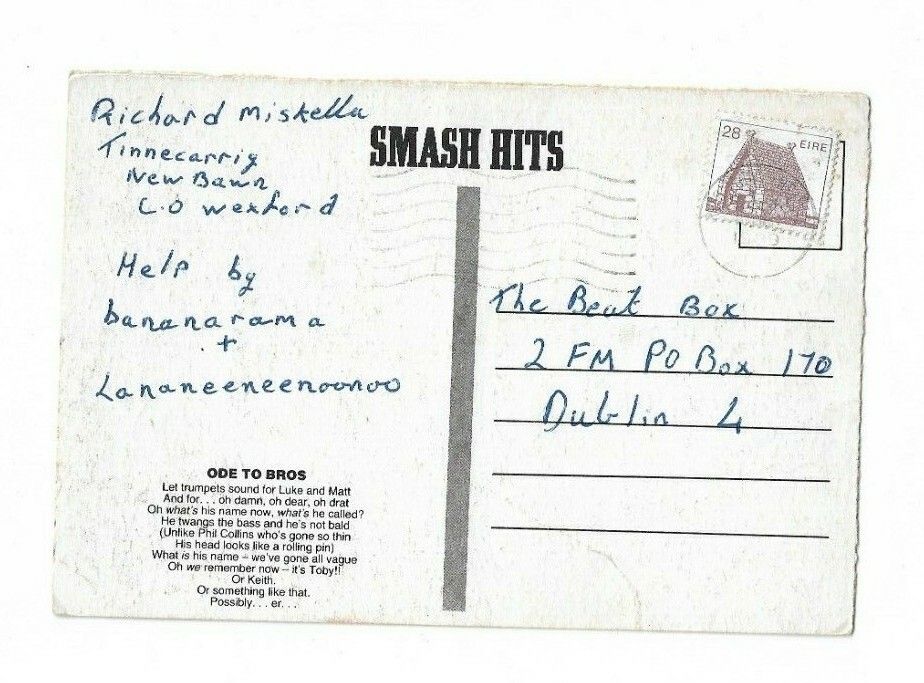 Richard Miskella
Tinnecarrig
New Bawn
C.O Wexford
Help by
bananarama
+
Lananeeneenoonoo
ODE TO BROS
Let trumpets sound for Luke and Matt
And for. . . oh damn, oh dear, oh drat
Oh what's his name now, what's he called?
He twangs the bass and he's not bald
(Unlike Phil Collins who's gone so thin
His head looks like a rolling pin)
What is his name – we've gone all vague
Oh we remember now – it's Toby!!
Or Keith.
Or something like that.
Possibly. . . er. . .
SMASH HITS
28 EIRE
The Beat Box
2 FM PO Box 170
Dublin 4